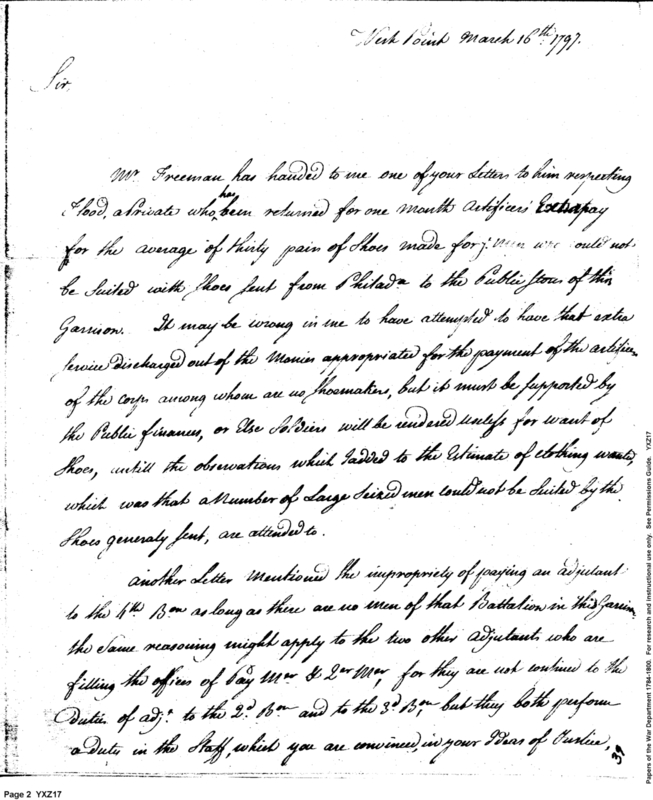 West Point March 16th 1797.
Sir,
Mr. Freeman has handed to me one of your Letters to him respecting
Flood, a Private who has been returned for one month Artificers Extra pay
for the average of thirty pair of Shoes made for men who could not
be Suited with Shoes Sent from Philada to the Public Stores of this
Garrison. It may be wrong in me to have attempted to have that extra
Service discharged out of the Monies appropriated for the payment of the artificers
of the corps among whom are no Shoemakers, but it must be Supported by
the Public finances, or Else Soldiers will be rendered useless for want of
Shoes, untill the observations which I added to the Estimate of clothing wanted,
which was that a Number of Large Seized men could not be Suited by the
Shoes generaly Sent, are attended to.
another Letter Mentioned the impropriety of paying an adjutant
to the 4th Bon as long as there are no men of that Battalion in this Garrison
the Same reasoning might apply to the two other adjutants who are
filling the offices of Pay Mer & 2er Mer, for they are not confined to the
Duties of adjt to the 2d Bon and to the 3d Bon, but they both perform
a duty in the Staff, which you are convinced, in your Ideas of Justice,
39
Page 2 YXZ17
Papers of the War Department 1784-1800. For research and instructional use only. See Permissions Guide. YXZ17